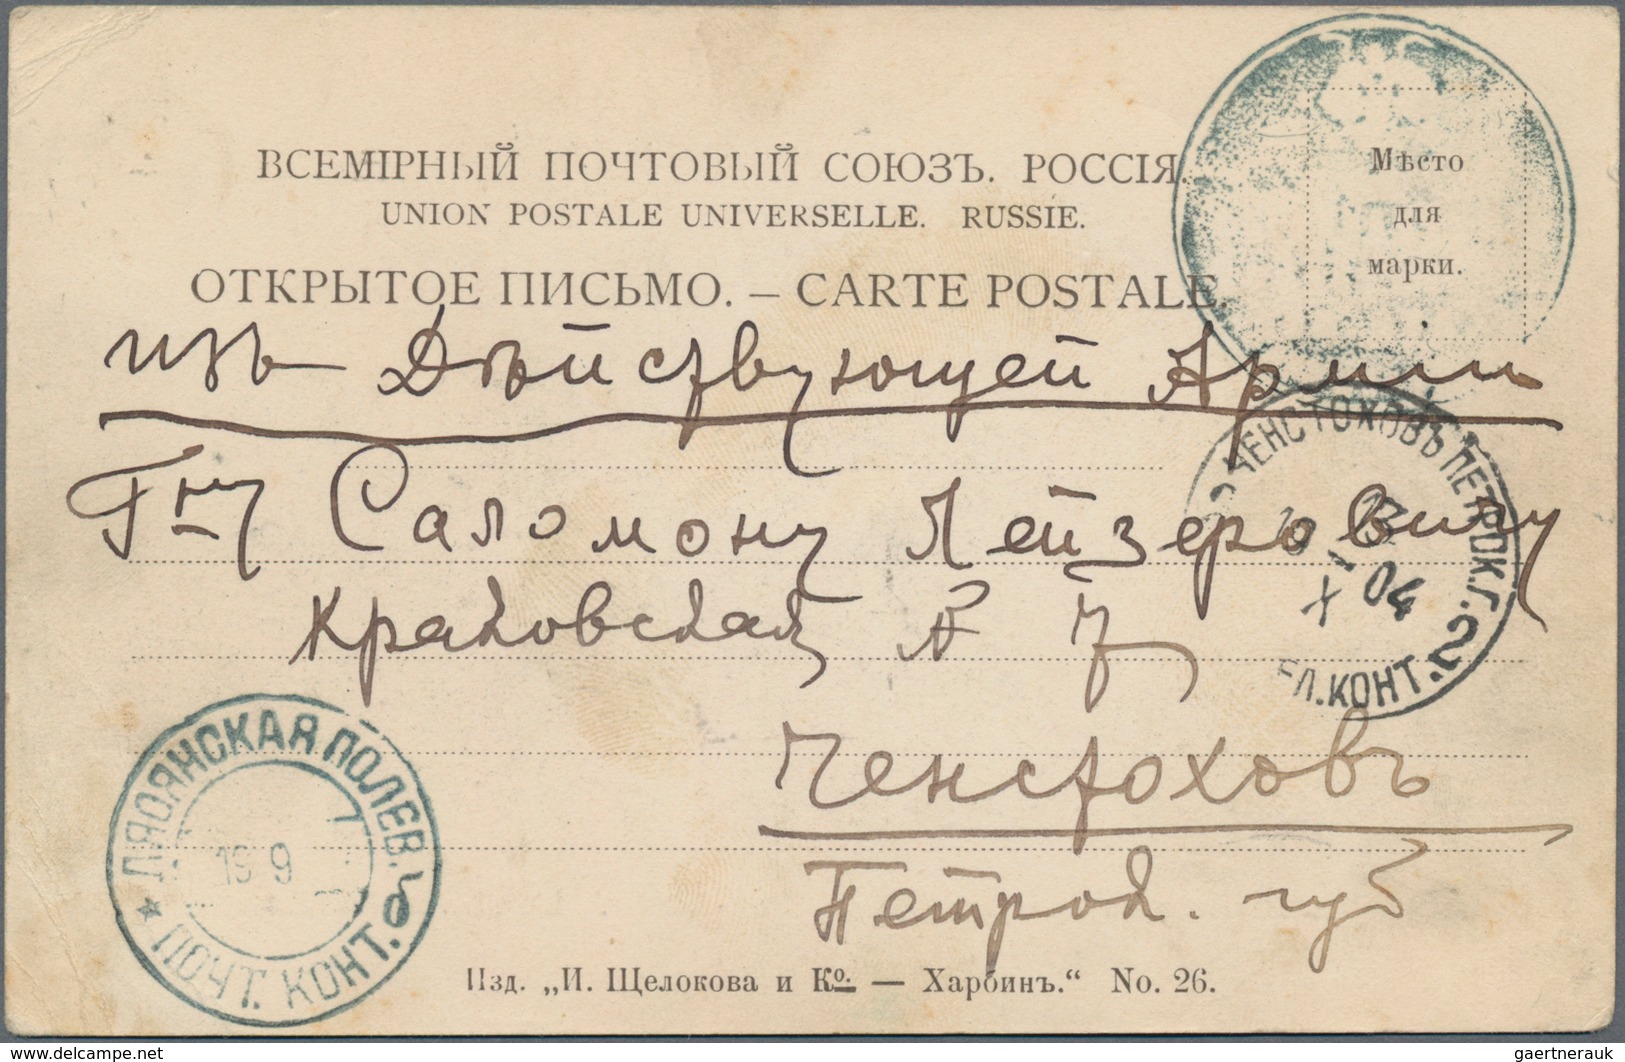 ВСЕМІРНЫЙ ПОЧТОВЫЙ СОЮЗЪ. РОССІЯ.
UNION POSTALE UNIVERSELLE. RUSSIE.
ОТКРЫТОЕ ПИСЬМО. – CARTE POSTALE.
Мѣсто
для
марки.
изъ Дѣйствующей Арміи
Гну Саломону Лейзеровичу
Краковская № 7
Ченстоховъ
Петрок. губ
ЧЕНСТОХОВЪ ПЕТРОК.Г. 2
X 04
ЕЛ.КОНТ.
ЛЯОЯНСКАЯ ПОЛЕВ.
19 9
ПОЧТ. КОНТ.
Изд. „И. Щелокова и Ко. — Харбинъ.“ No. 26.
delcampe.net
gaertnerauk